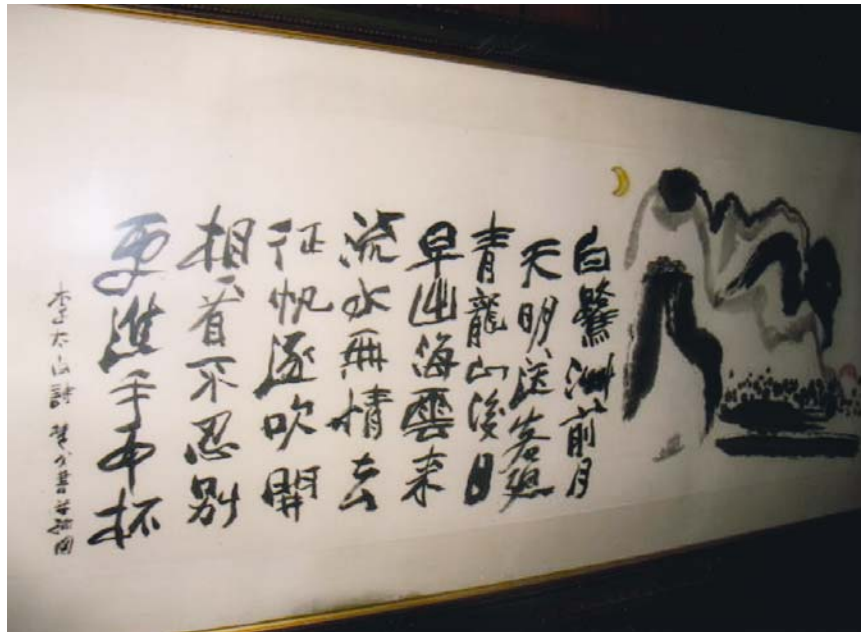 白鷺洲前月
天明送客廻
青龍山後日
早出海雲来
流水無情去
征帆逐吹開
相看不忍別
更進手中杯
李太白詩 書並補圖